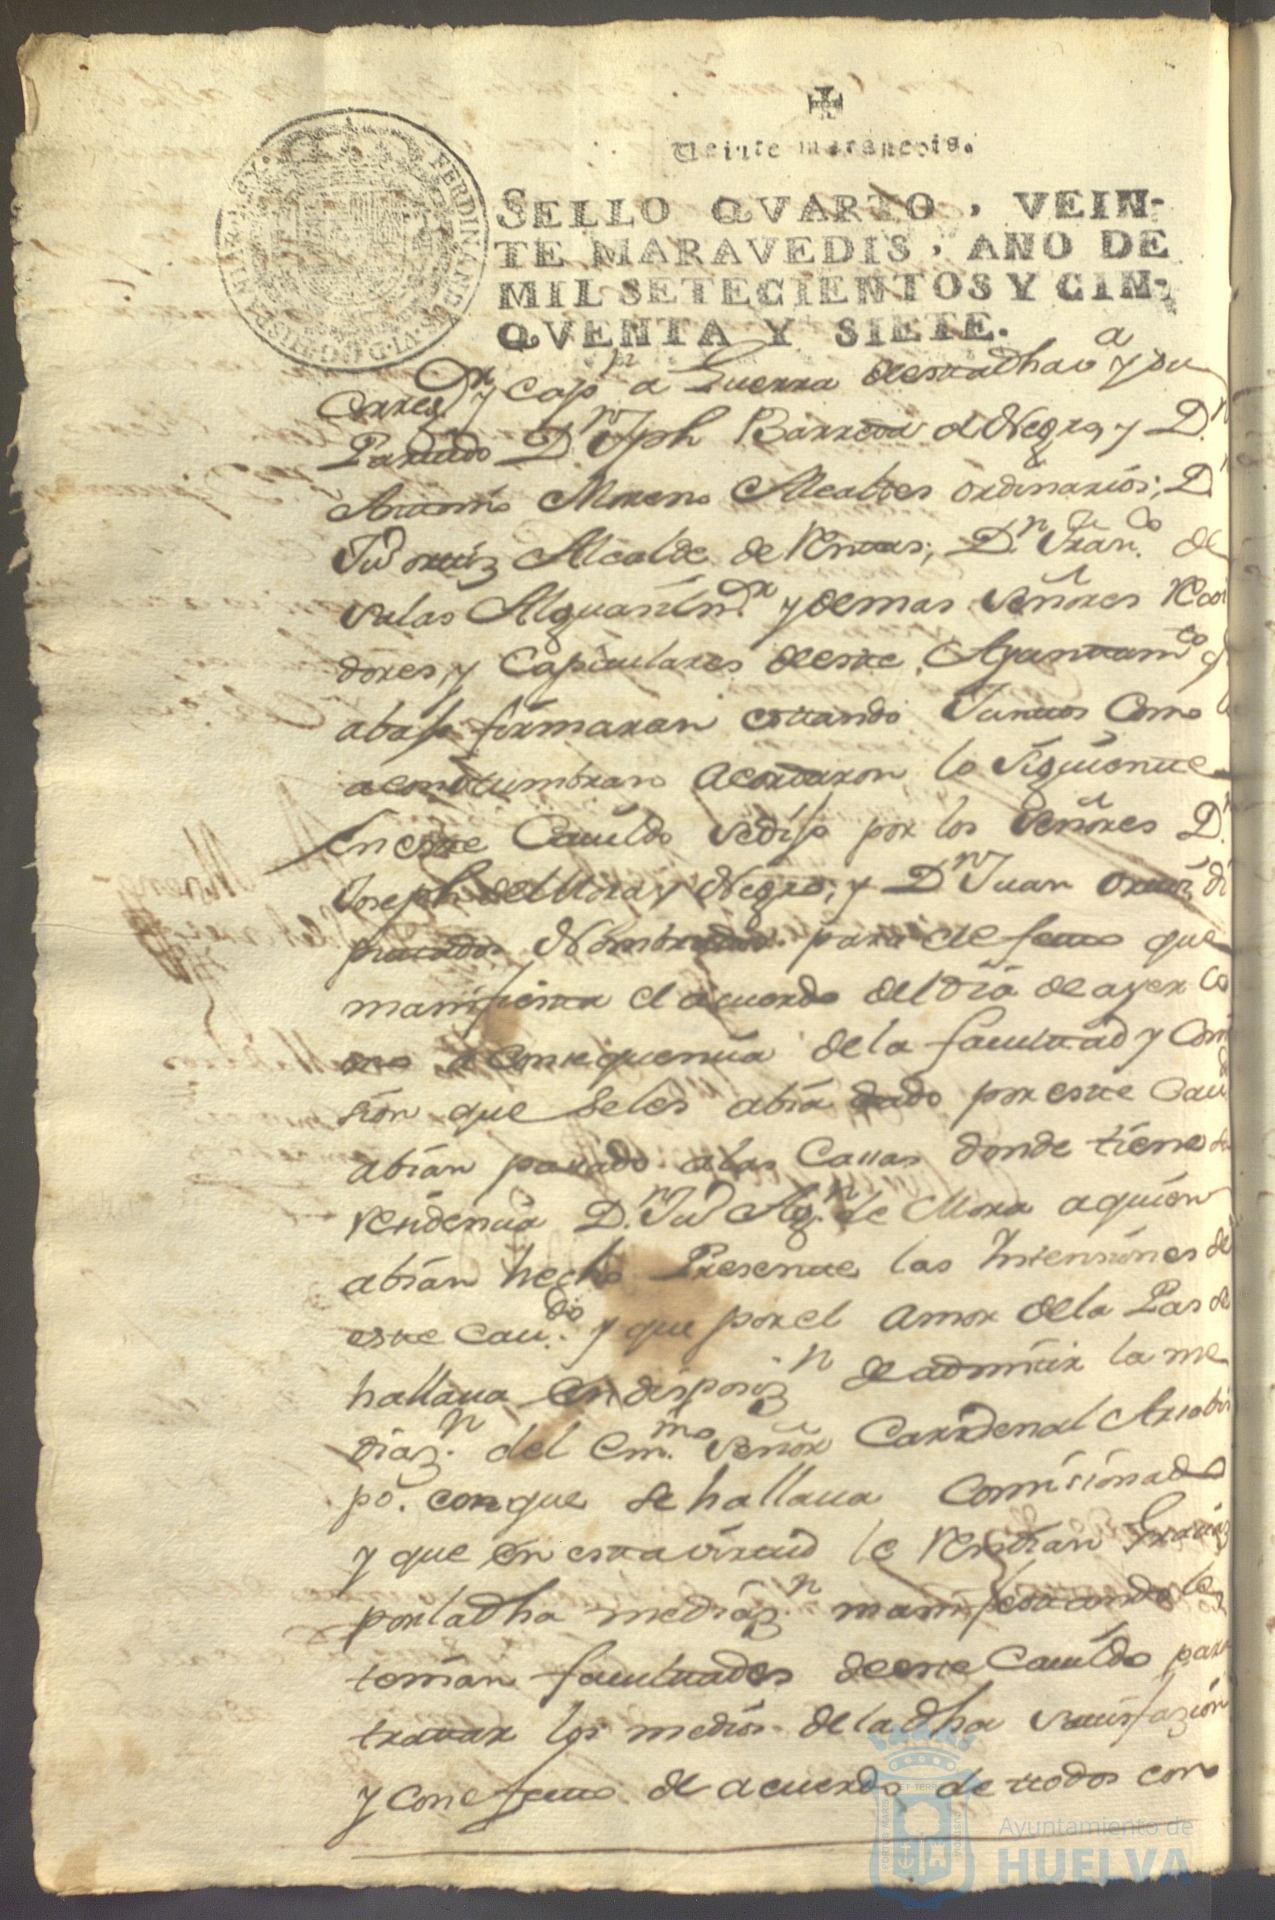 Veinte maravedis.
SELLO QVARTO, VEIN-
TE MARAVEDIS, AÑO DE
MIL SETECIENTOS Y CIN-
QVENTA Y SIETE.
FERDINANDVS VI D G HISPANIAR REX
Corregor y Capn a Guerra desta dha va y su
Partido Dn Jph Barreda el Negro, y Dn
Antonio Moreno Alcaldes ordinarios; Dn
Jud ortiz Alcalde de Rentas; Dn Franco de
salas Alguasil mor y demas señores Regi
dores, y Capitulares deeste Ayuntamto q
abajo firmaran estando Juntos Como
acostumbran acordaron lo siguiente
En este Cauildo sedijo por los señores Dn
Joseph de Mora y Negro, y Dn Juan Ortiz, di
putados Nombrados para el efecto que
manifiesta el acuerdo del dia de ayer Co
mo a Consequenzia de la facultad y Comi
sion que seles abia dado por este Caudo
abian pasado a las Casas donde tiene su
residenzia Dn Jud Agn de Mora a quien
abian hecho Presente las Intensiones de
este Caudo y que por el amor de la Pas se
hallaua en disposizn de admitir la me
diazn del Emmo señor Cardenal Arzobis
po. con que se hallaua Comisionado
y que en esta virtud le rendian Grazias
por la dha mediazn manifestandole
tenian facultades deeste Cauildo para
tratar los medios de la dha satisfazion
y con efecto de acuerdo de todos con
Ayuntamiento de
HUELVA